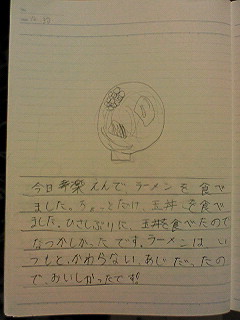 今日幸楽えんでラーメンを食べ
ました。ちょっとだけ、玉丼を食べ
ました。ひさしぶりに、玉丼を食べたので
なつかしかったです。ラーメンはい
つもと、かわらない、あじだったの
でおいしかったです!!